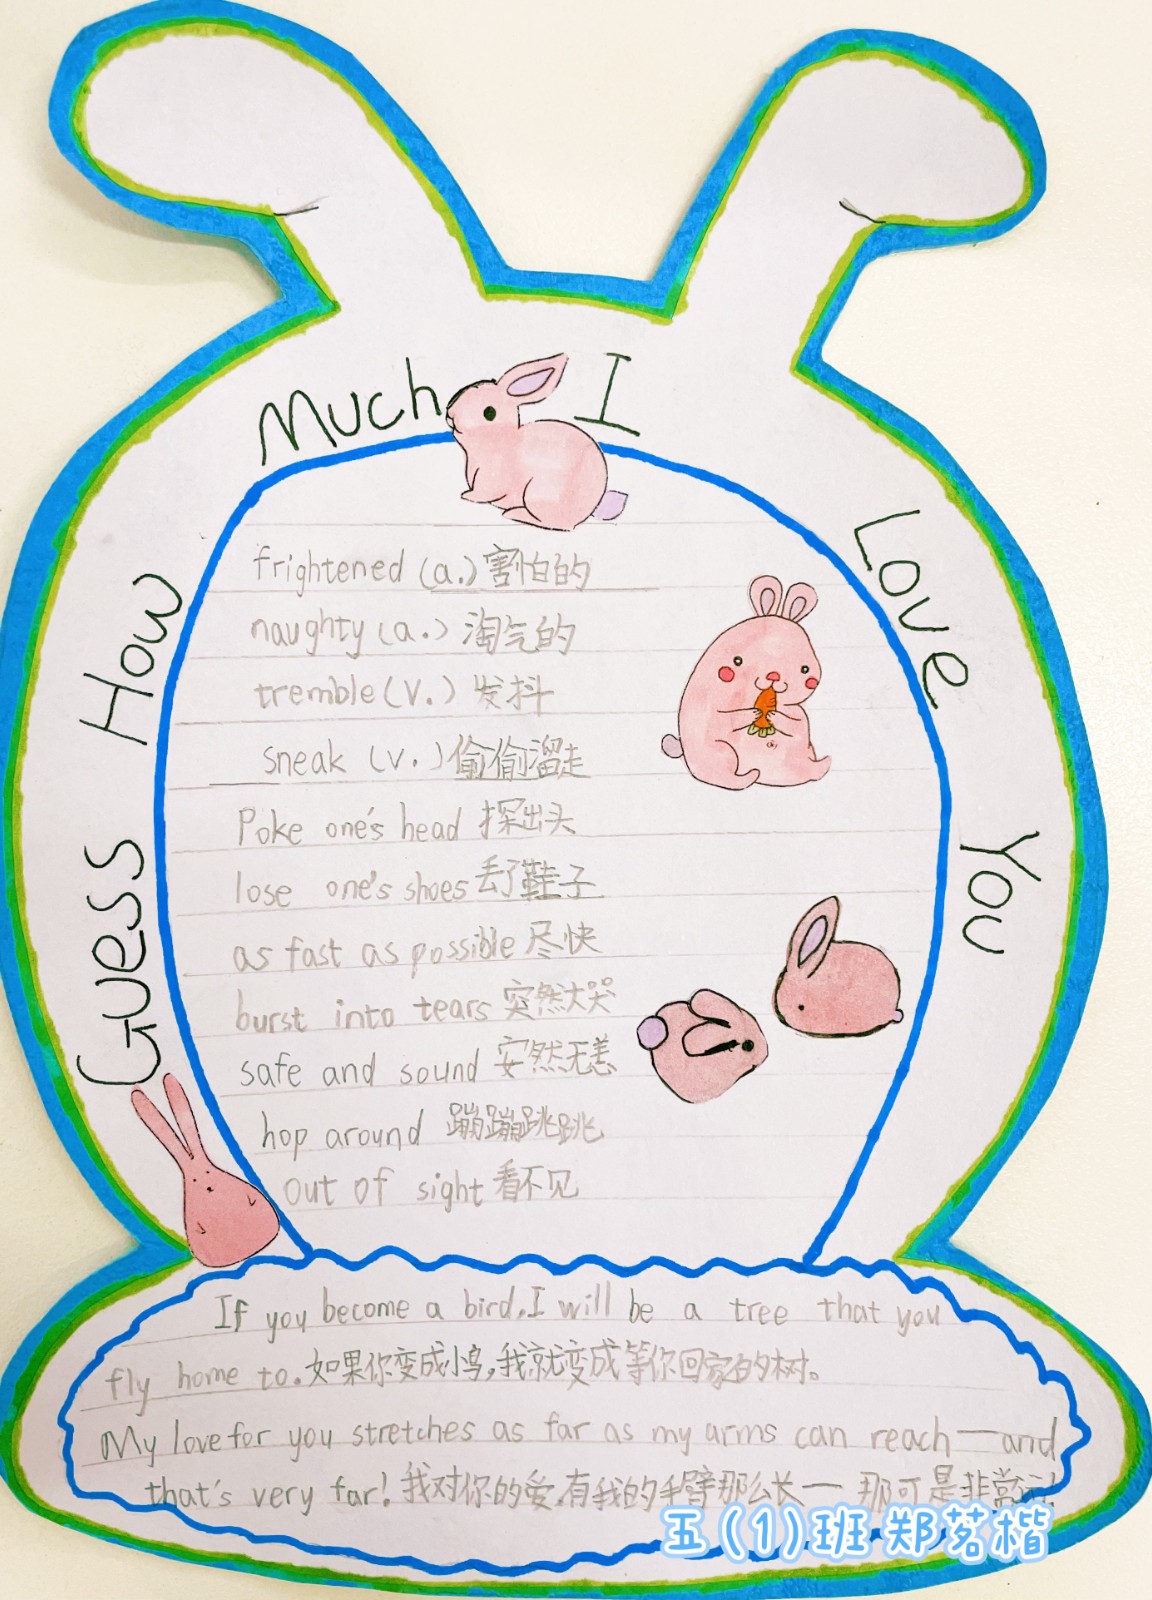 Guess How Much I Love You
frightened (a.) 害怕的
naughty (a.) 淘气的
tremble (v.) 发抖
sneak (v.) 偷偷溜走
Poke one's head 探出头
lose one's shoes 丢了鞋子
as fast as possible 尽快
burst into tears 突然大哭
safe and sound 安然无恙
hop around 蹦蹦跳跳
out of sight 看不见
If you become a bird, I will be a tree that you
fly home to. 如果你变成小鸟,我就变成等你回家的树。
My love for you stretches as far as my arms can reach—and
that's very far! 我对你的爱,有我的手臂那么长— 那可是非常
五(1)班 郑茗楷